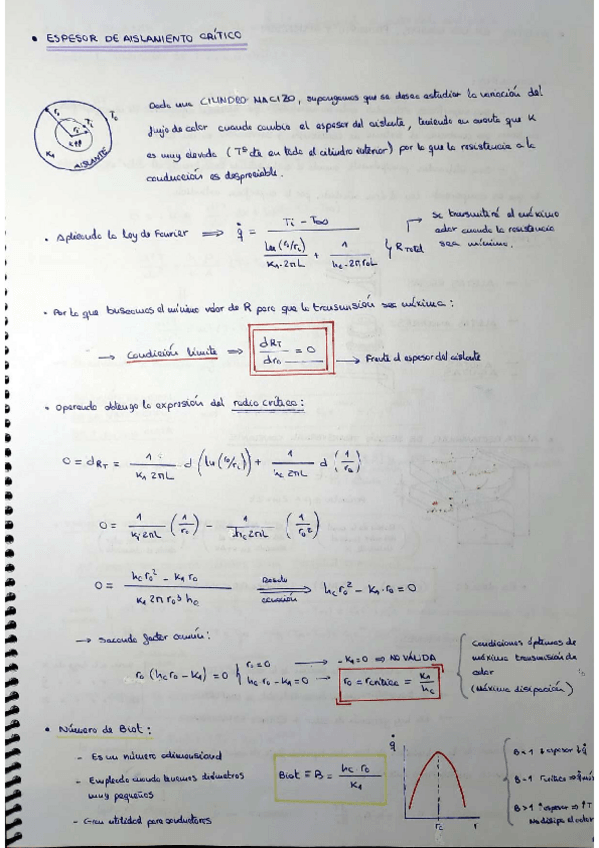 • ESPESOR DE AISLAMIENTO CRÍTICO
Dado un CILINDRO MACIZO, supongamos que se desea estudiar la variación del
flujo de calor cuando cambia el espesor del aislante, teniendo en cuenta que K
es muy elevada (Tª cte en todo el cilindro interior) por lo que la resistencia a la
conducción es despreciable.
r₀ Ti T∞
ri
K₁ AISLANTE
• Aplicando la Ley de Fourier ⇒ q̇ = (Ti - T∞) / (ln(r₀/ri)/(K₁·2πL) + 1/(hc·2πr₀L)) } R Total
se transmitirá el máximo
calor cuando la resistencia
sea mínima.
• Por lo que buscamos el mínimo valor de R para que la transmisión sea máxima:
→ Condición límite ⇒ dR_T/dr₀ = 0 → Frente al espesor del aislante
• Operando obtengo la expresión del radio crítico:
0 = dR_T = 1/(K₁ 2πL) d(ln(r₀/ri)) + 1/(hc 2πL) d(1/r₀)
0 = 1/(K₁ 2πL) (1/r₀) - 1/(hc 2πL) (1/r₀²)
0 = (hc r₀² - K₁ r₀)/(K₁ 2π r₀³ hc) Resulta ecuación ⇒ hc r₀² - K₁·r₀ = 0
→ Sacando factor común:
r₀ (hc r₀ - K₁) = 0 { r₀ = 0 → -K₁ = 0 ⇒ NO VÁLIDA
hc r₀ - K₁ = 0 → r₀ = r crítico = K₁/hc
Condiciones óptimas de
máxima transmisión de
calor
(Máxima disipación)
• Número de Biot:
- Es un número adimensional
- Empleado cuando tenemos diámetros
muy pequeños
- Gran utilidad para conductores
Biot ≡ B = hc r₀ / K₁
q̇
rc r
B < 1 ↓ espesor ↓ q̇
B = 1 r crítico ⇒ q̇
B > 1 ↑ espesor ⇒ ↑T
No disipa el calor